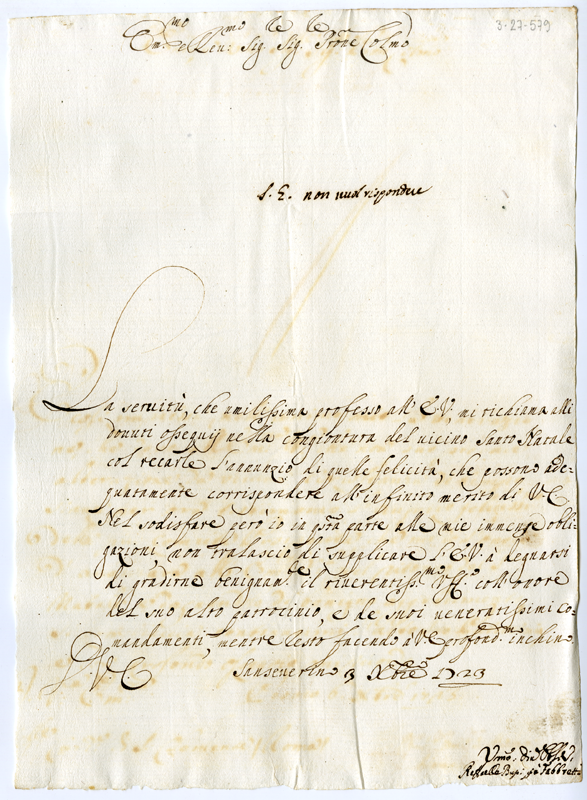 3-27-579
Em.mo e Rev.mo Sig.re Sig.re P.rone Col.mo
S. E. non vuol rispondere
La seruitù, che umilissima professo all' E.V., mi richiama alli
douuti ossequij nella congiontura del vicino Santo Natale
col recarle l'annunzio di quelle felicità, che possono ade-
guatamente corrispondere all' infinito merito di V.E.
Nel sodisfare però io in q.sta parte alle mie immense obli-
gazioni non tralascio di supplicare l' E.V. à degnarsi
di gradirne benignam.te il riuerentiss.mo coll' onore
del suo alto patrocinio, e de suoi veneratissimi co-
mandamenti, mentre resto facendo à V.E. profond.m inchino
D. V. E. Sanseverino 3 Xbre 1723
Vmo.